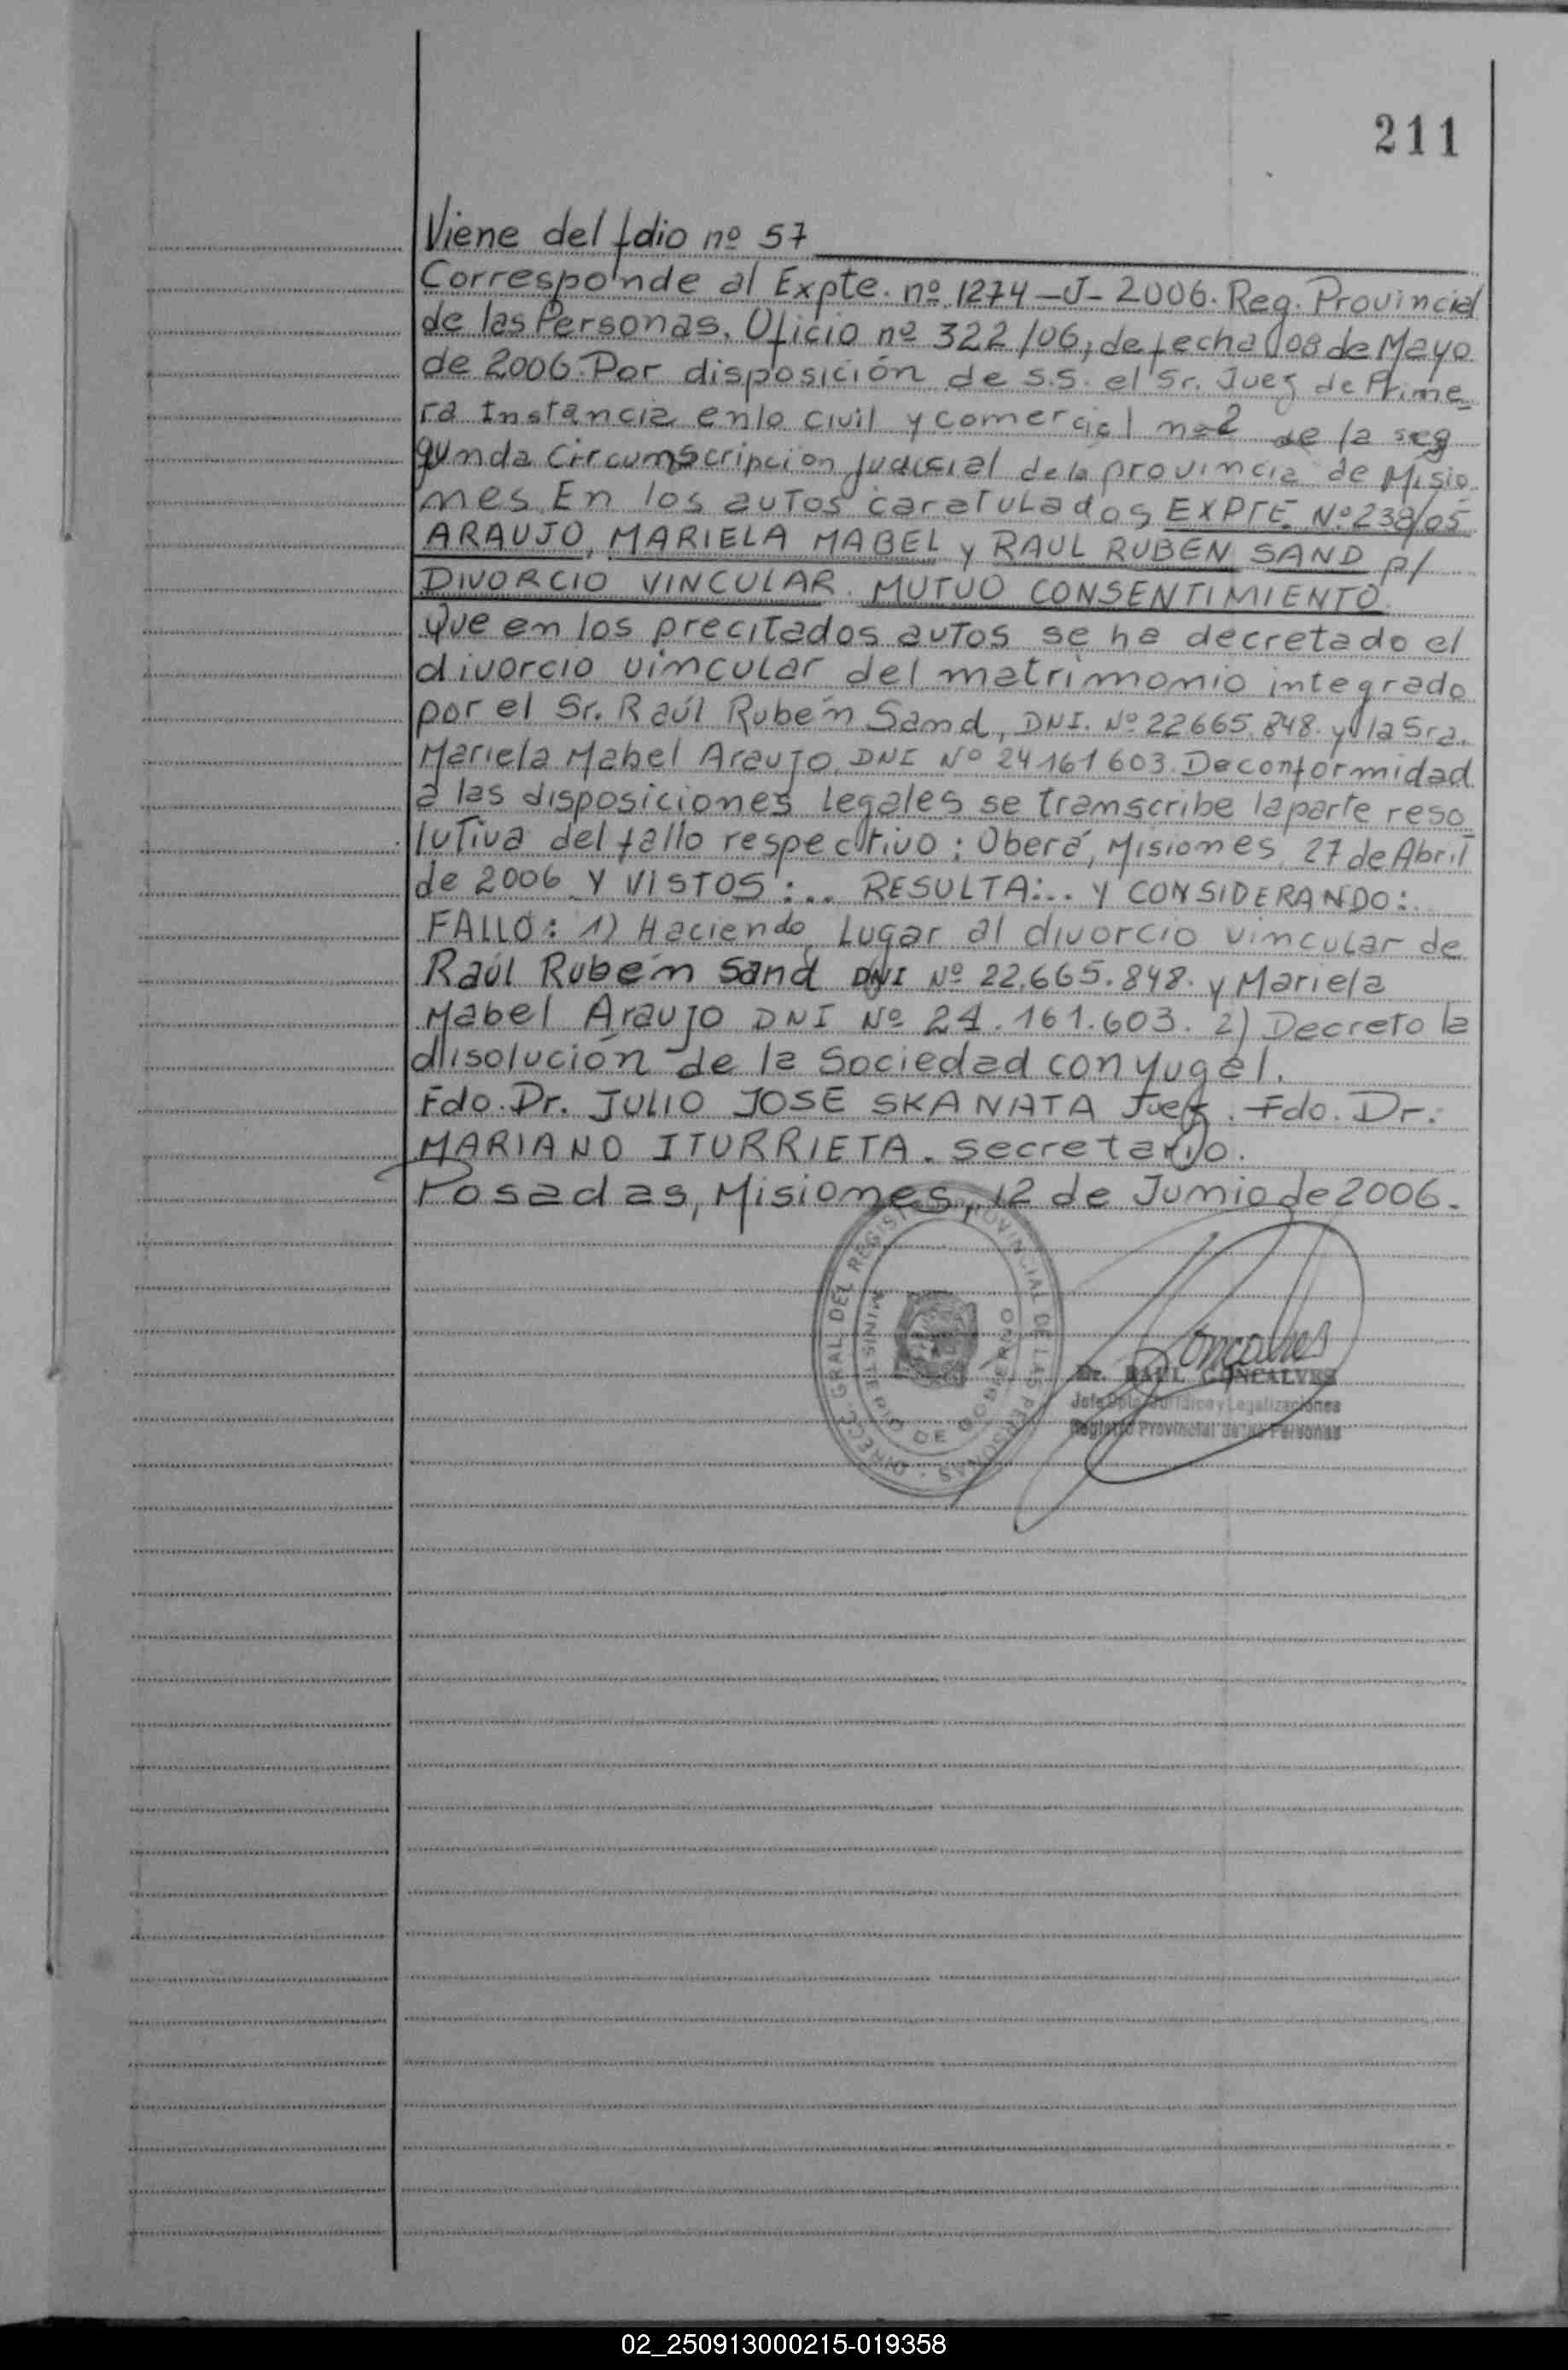 211
Viene del folio nº 57
Corresponde al Expte. nº 1274-J-2006. Reg. Provincial
de las Personas. Oficio nº 322/06, de fecha 08 de Mayo
de 2006. Por disposición de S.S. el Sr. Juez de Prime_
ra Instancia en lo civil y comercial nº 2 de la seg
gunda Circumscripcion Judicial de la provincia de Misio_
nes. En los autos caratulados EXPTE. Nº 238/05
ARAUJO, MARIELA MABEL y RAUL RUBEN SAND p/
DIVORCIO VINCULAR. MUTUO CONSENTIMIENTO.
Que en los precitados autos se ha decretado el
divorcio vincular del matrimonio integrado
por el Sr. Raúl Rubén Sand, DNI. Nº 22665.848. y la Sra.
Mariela Mabel Araujo, DNI Nº 24161603. De conformidad
a las disposiciones legales se transcribe la parte reso_
lutiva del fallo respectivo: Oberá, Misiones 27 de Abril
de 2006 Y VISTOS:... RESULTA:.. Y CONSIDERANDO:
FALLO: 1) Haciendo Lugar al divorcio vincular de
Raúl Rubén Sand DNI Nº 22.665.848. y Mariela
Mabel Araujo DNI Nº 24.161.603. 2) Decreto la
disolución de la Sociedad conyugal.
Fdo. Dr. JULIO JOSE SKANATA Juez. Fdo. Dr.
MARIANO ITURRIETA. secretario.
Posadas, Misiones, 12 de Junio de 2006.
DIRECC. GRAL. DEL REGISTRO PROVINCIAL DE LAS PERSONAS
MINISTERIO DE GOBIERNO
Goncalves
Dr. RAUL GONCALVES
Jefe Dpto. Jurídico y Legalizaciones
Registro Provincial de las Personas
02_250913000215-019358